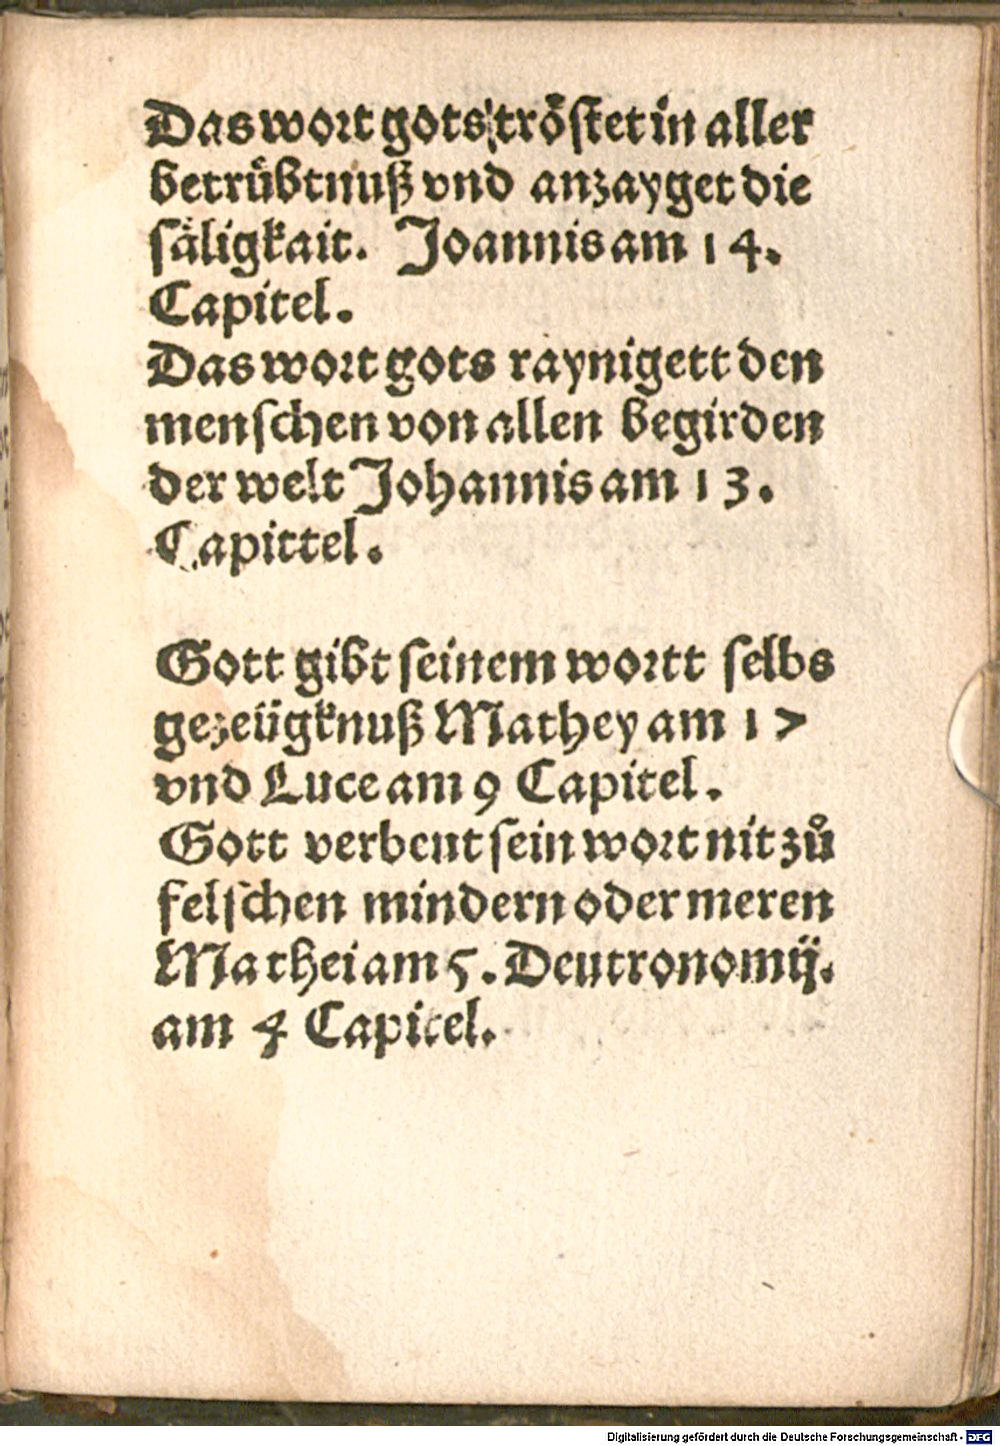 Das wort gots tröstet in aller
betrübtnuß vnd anzayget die
säligkait. Joannis am 14.
Capitel.
Das wort gots raynigett den
menschen von allen begirden
der welt Johannis am 13.
Capittel.
Gott gibt seinem wortt selbs
gezeügknuß Mathey am 17
vnd Luce am 9 Capitel.
Gott verbeut sein wort nit zů
felschen mindern oder meren
Mathei am 5. Deutronomij.
am 4 Capitel.
Digitalisierung gefördert durch die Deutsche Forschungsgemeinschaft - DFG